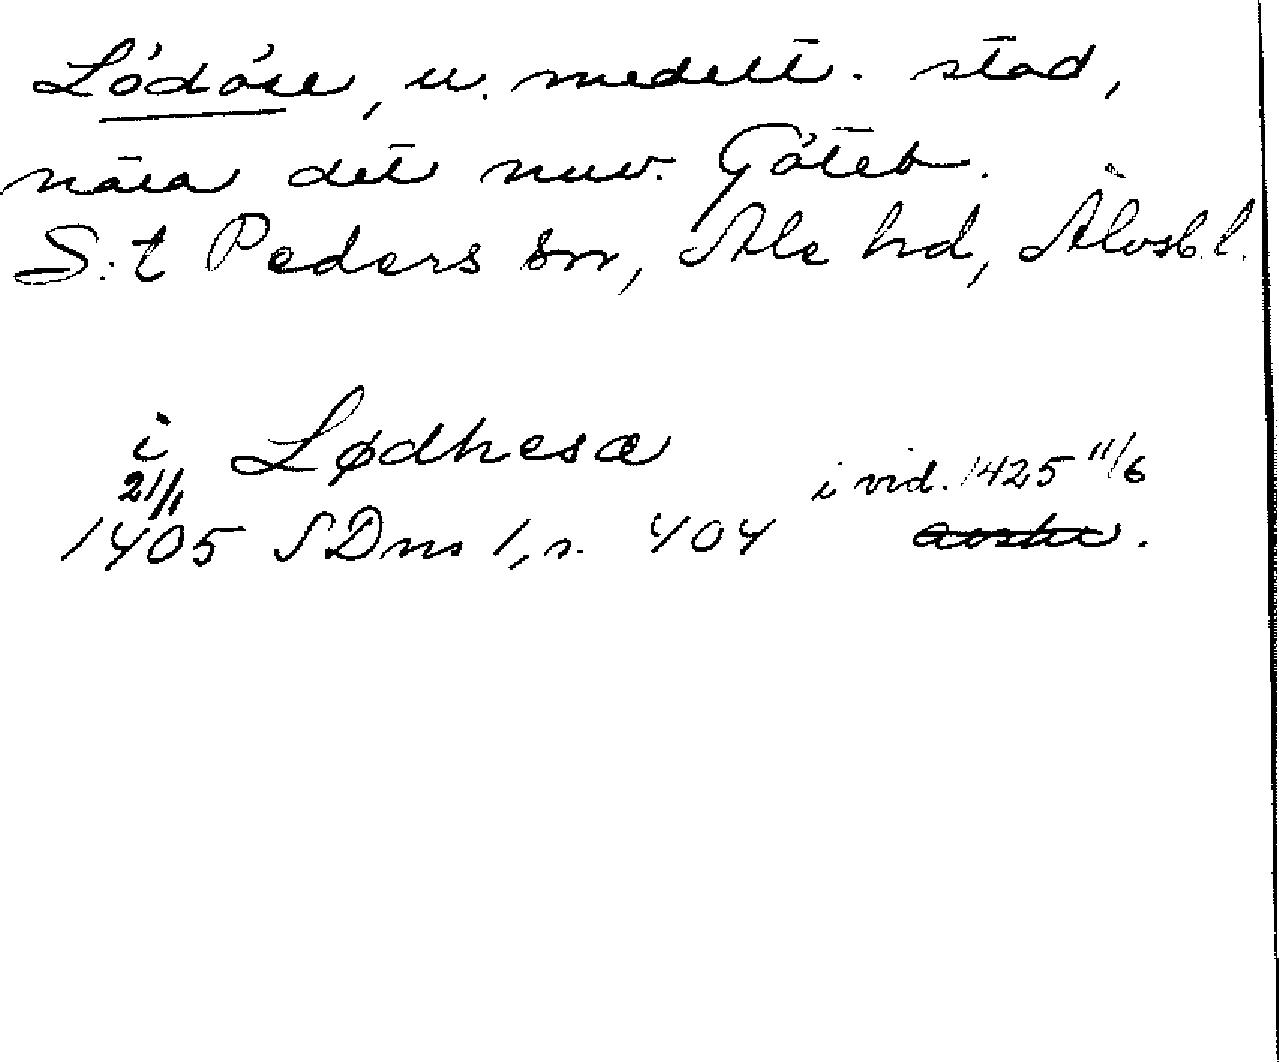 Lödöse, u. medelt. stad,
nära det nuv. Göteb.
S:t Peders sn, Ale hd, Älvsb. l.
i Lødhesæ
21/1 i vid. 1425 11/6
1405 SDns 1, s. 404 avskr.